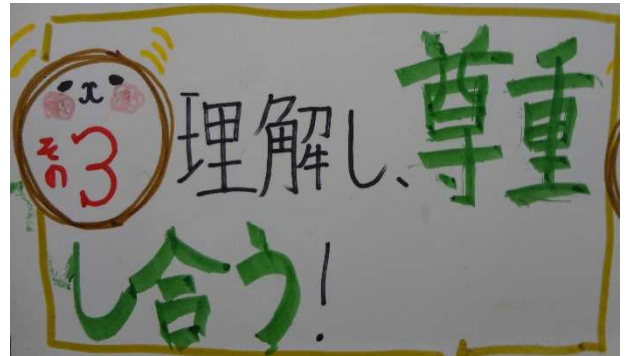 その3
理解し、尊重
し合う!